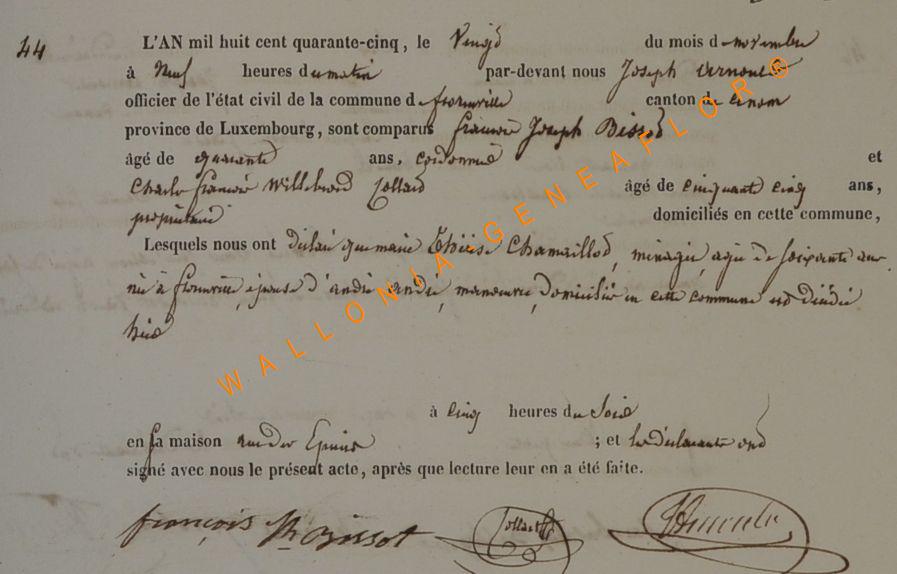 44
L'AN mil huit cent quarante-cinq, le Vingt du mois de novembre
à Neuf heures du matin par-devant nous Joseph Arnould
officier de l'état civil de la commune de florenville canton de
province de Luxembourg, sont comparus françois Joseph Bissot
âgé de quarante ans, cordonnié et
Charle françois Willebrord Collard âgé de cinquante cinq ans,
propriétaire domiciliés en cette commune,
Lesquels nous ont déclaré que marie Thérèse Chamaillot, ménagère, agée de soixante ans
née à florenville épouse d'andré andré, manoeuvre, domicilié en cette commune est décédée
hier
à cinq heures du Soir
en sa maison rue des Epines ; et les déclarants ont
signé avec nous le présent acte, après que lecture leur en a été faite.
françois Bissot Collard Arnould
WALLONIA-GENEAFLOR®